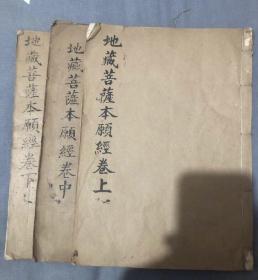 地藏菩薩本願經卷上
地藏菩薩本願經卷中
地藏菩薩本願經卷下